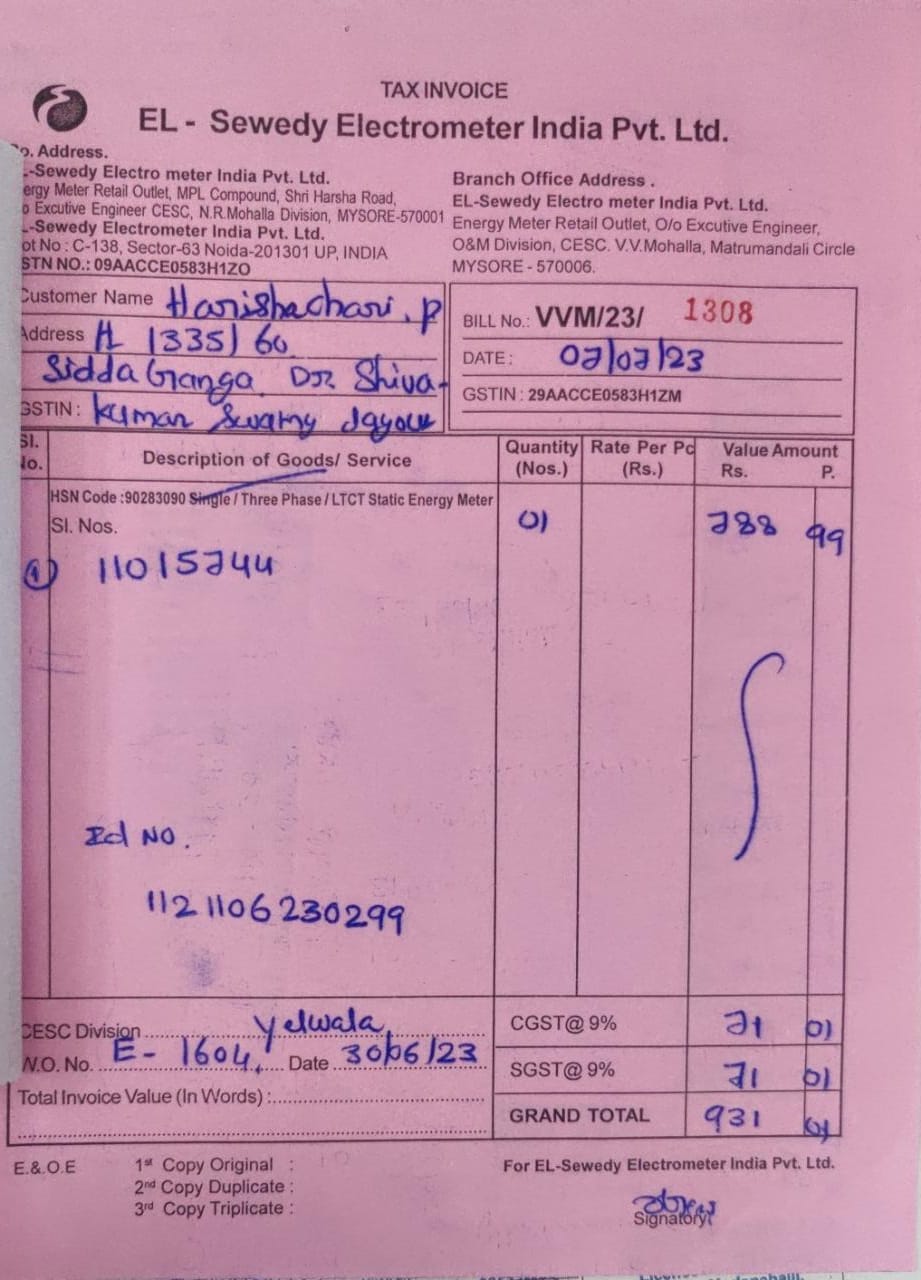 TAX INVOICE
EL - Sewedy Electrometer India Pvt. Ltd.
o. Address.
-Sewedy Electro meter India Pvt. Ltd.
ergy Meter Retail Outlet, MPL Compound, Shri Harsha Road,
o Excutive Engineer CESC, N.R.Mohalla Division, MYSORE-570001
-Sewedy Electrometer India Pvt. Ltd.
ot No : C-138, Sector-63 Noida-201301 UP, INDIA
STN NO.: 09AACCE0583H1ZO
Branch Office Address .
EL-Sewedy Electro meter India Pvt. Ltd.
Energy Meter Retail Outlet, O/o Excutive Engineer,
O&M Division, CESC. V.V.Mohalla, Matrumandali Circle
MYSORE - 570006.
Customer Name Harishachari. P
Address # 1335/60
Sidda Ganga Dr. Shiva-
GSTIN : kumar Swamy
BILL No.: VVM/23/ 1308
DATE : 07/07/23
GSTIN : 29AACCE0583H1ZM
Sl. No. Description of Goods/ Service Quantity (Nos.) Rate Per Pc (Rs.) Value Amount Rs. P.
HSN Code :90283090 Single / Three Phase / LTCT Static Energy Meter
Sl. Nos. 01 788 99
1 11015744
Id NO.
1121106230299
CESC Division Yelwala
W.O. No. E- 1604 Date 30/06/23
Total Invoice Value (In Words) :
CGST@ 9% 71 01
SGST@ 9% 71 01
GRAND TOTAL 931 01
E.&.O.E
1st Copy Original :
2nd Copy Duplicate :
3rd Copy Triplicate :
For EL-Sewedy Electrometer India Pvt. Ltd.
Signatory